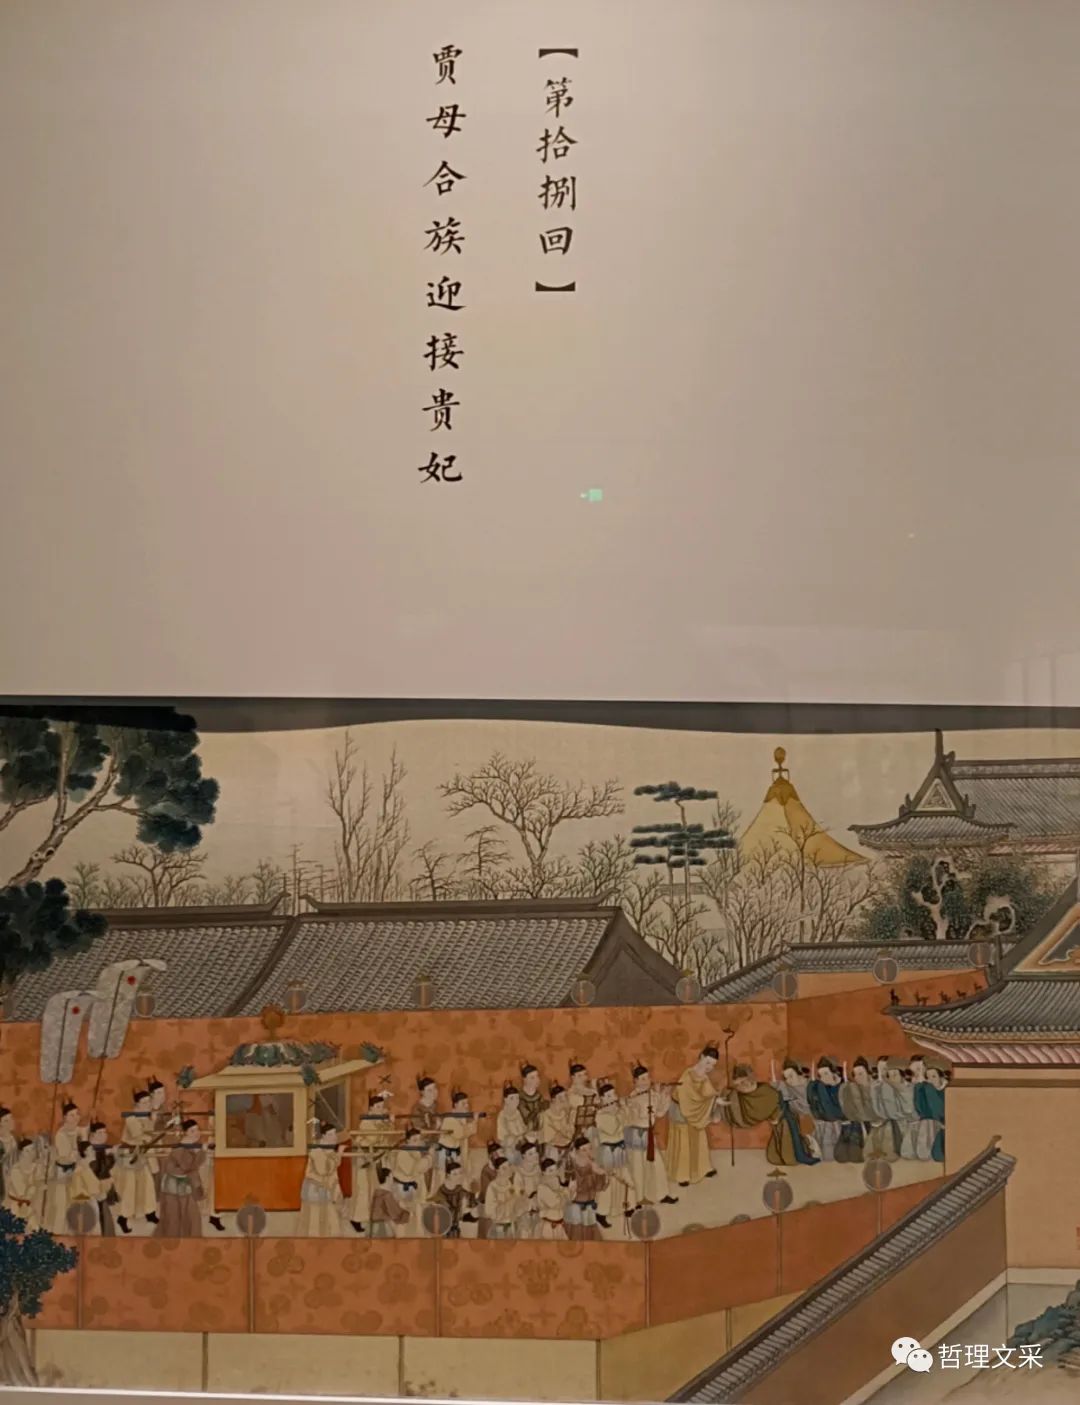 【第拾捌回】
贾母合族迎接贵妃
哲理文采